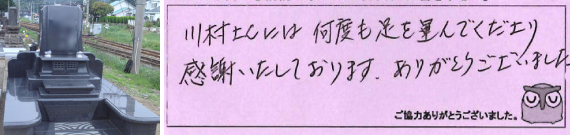 川村さんには 何度も足を運んでくださり
感謝いたしております。ありがとうございました
ご協力ありがとうございました。